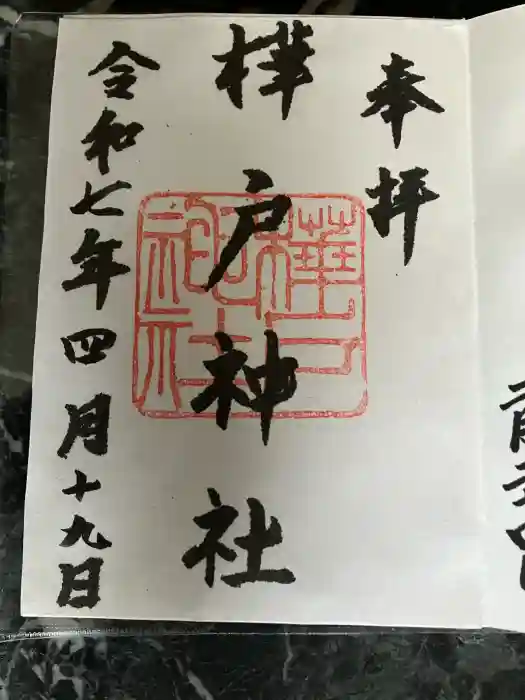 奉拝
樺戸神社
令和七年四月十九日
樺戸神社